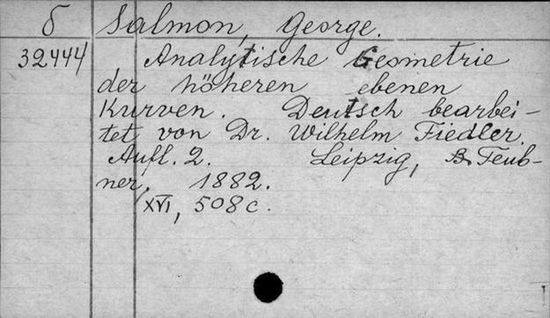 б Salmon, George.
32444 Analytische Geometrie
der höheren ebenen
Kurven. Deutsch bearbei-
tet von Dr. Wilhelm Fiedler.
Aufl. 2. Leipzig, B. Teub-
ner, 1882.
XVI, 508 c.